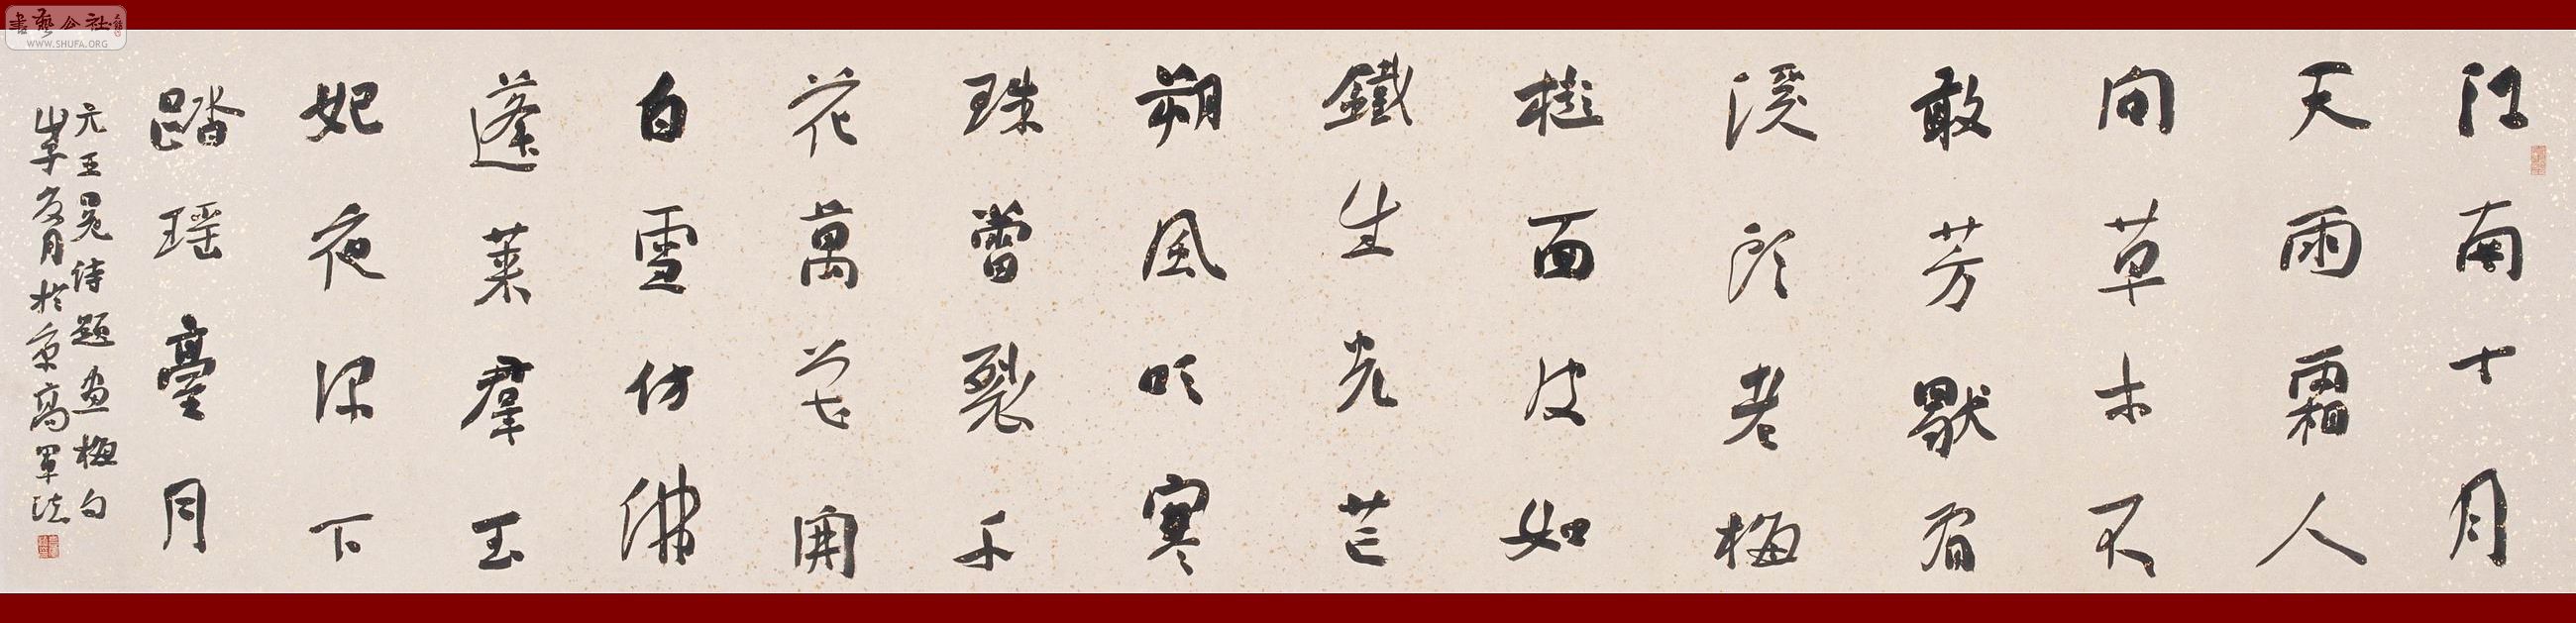 江南十月
天雨霜人
间草木不
敢芳默有
溪头老梅
树面皮如
鐵生光芒
朔風吹寒
珠蕾裂千
花萬花開
白雪仿佛
蓬萊羣玉
妃夜深下
踏瑶臺月
元王冕诗题画梅句
年友月於京高军
書藝公社
WWW.SHUFA.ORG